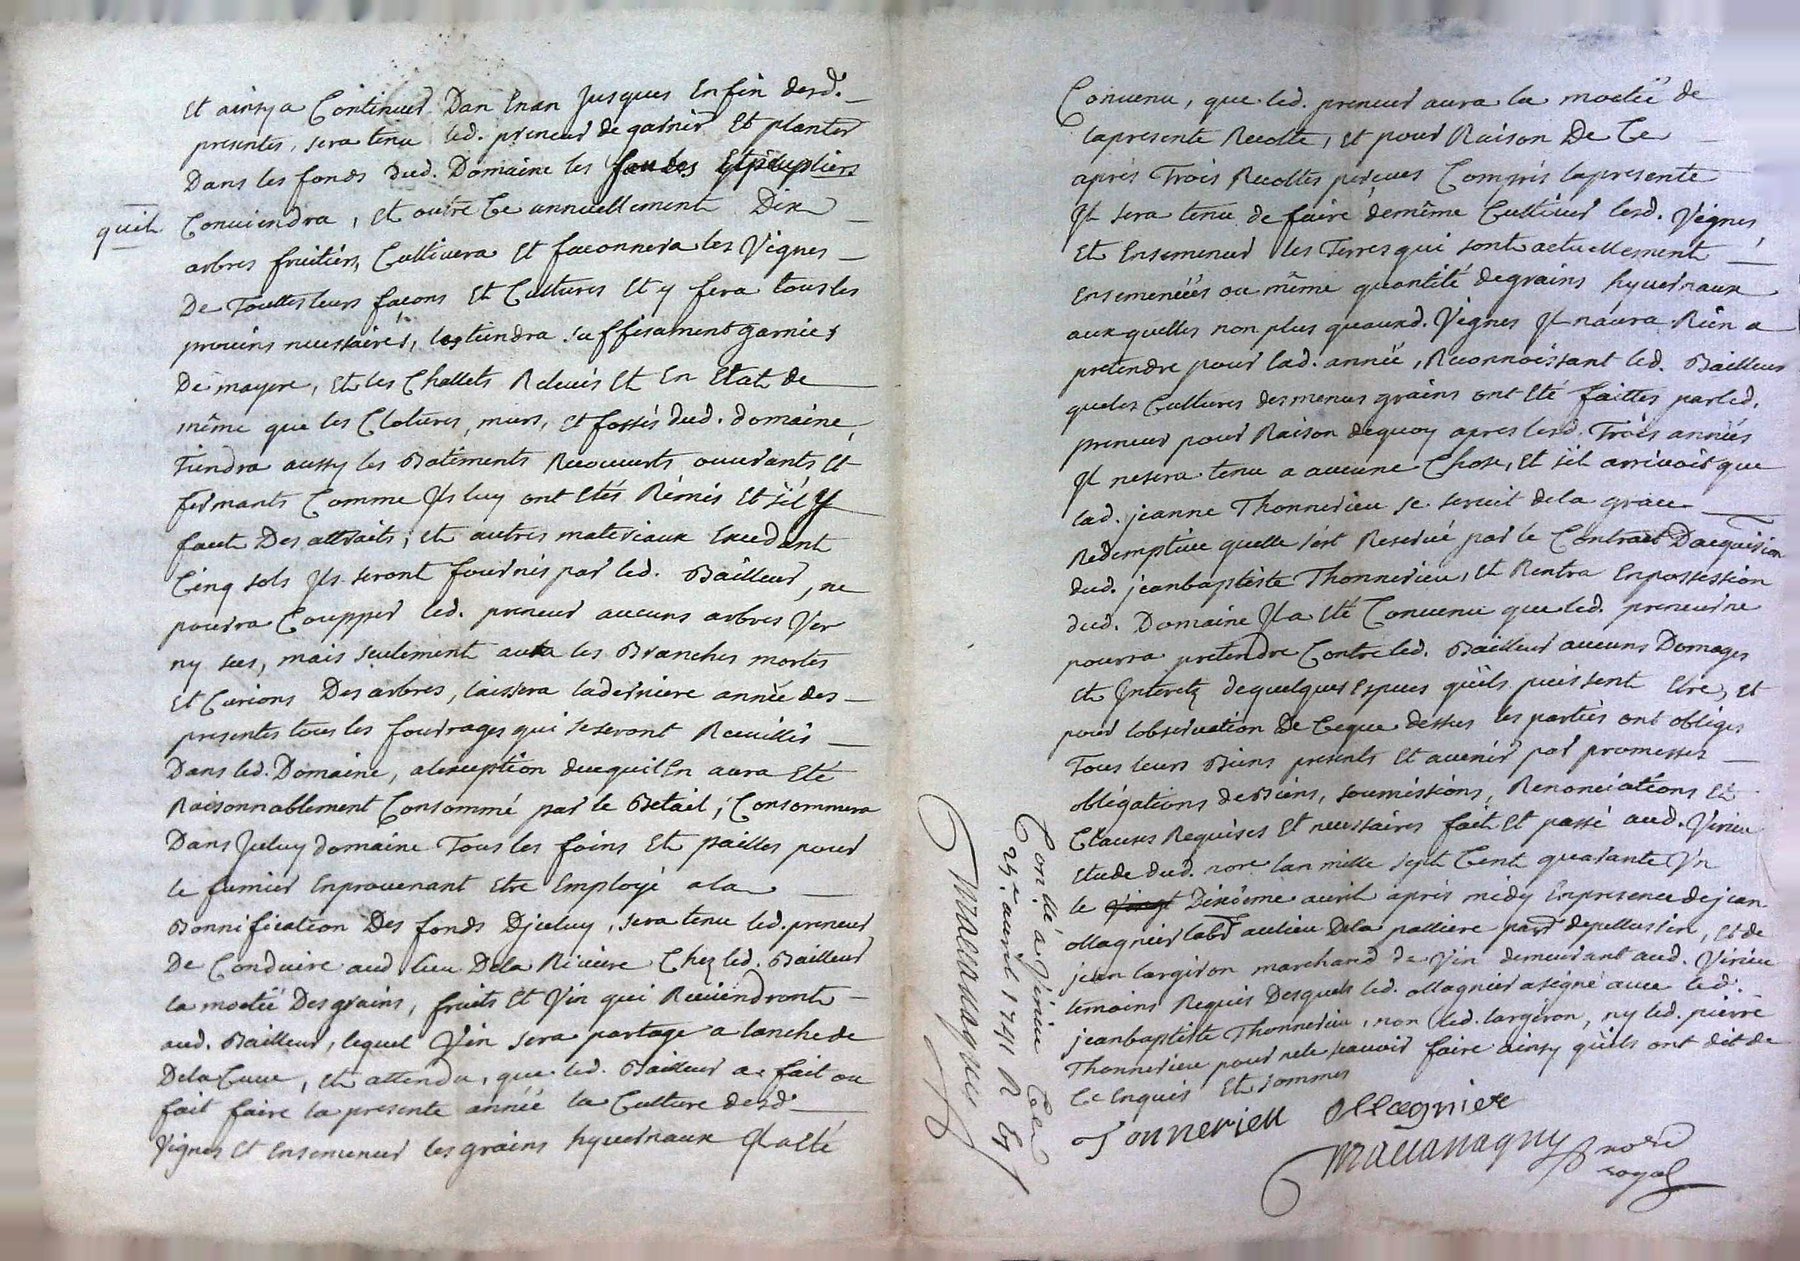 Et ainsy a Continuer Dan Enan Jusques Enfin desd.
presentes, sera tenu led. preneur de garnir Et planter
Dans les fonds dud. Domaine les saules Et peupliers
quil Conviendra, Et outre Ce annuellement Dix
arbres fruitiers, Cultivera Et faconnera les Vignes
De Touttes leurs façons Et Cultures Et y fera tous les
provins necessaires, les tiendra suffisament garnies
De mayere, Et les Challets Relevés Et En Etat de
même que les Clotures, murs, Et fossés dud. domaine,
Tiendra aussy les Batiments Recouverts ouvrants Et
fermants Comme Jls luy ont Etés Rémis Et s'il y
faut Des attraits, Et autres materiaux Excedant
Cinq sols Jls seront fournis par led. Bailleur, ne
pourra Coupper led. preneur aucuns arbres Ver
ny secs, mais seulement aura les Branches mortes
Et Curions Des arbres, laissera la derniere année des
presentes tous les fourrages qui se seront Recuillis
Dans led. Domaine, a lexception de ce quil En aura Eté
Raisonnablement Consommé par le Betail; Consommera
Dans Jceluy domaine Tous les foins Et pailles pour
le fumier En provenant Etre Employé a la
Bonnification Des fonds Djceluy, sera tenu led. preneur
De Conduire aud. lieu De la Riviere Chez led. Bailleur
la moetié Des grains, fruits Et Vin qui Reviendront
aud. Bailleur, lequel Vin sera partage a lanche de
De la Cuve, Et attendu, que led. Bailleur a fait ou
fait faire la presente année la Culture desd.
Vignes Et Ensemencer les grains hyvernaux Jl a Eté
Convenu, que led. preneur aura la moetié de
la presente Recolte, Et pour Raison De Ce
après Trois Recoltes perçues Compris la presente
Jl sera tenu de faire de même Cultiver lesd. Vignes,
Et Ensemencer les Terres qui sont actuellement
Ensemencées ou même quantité de grains hyvernaux
aux quelles non plus quauxd. Vignes Jl n'aura Rien a
pretendre pour lad. année, Reconnoissant led. Bailleur
que les Cultures des menus grains ont Eté faittes par led.
preneur pour Raison de quoy apres lesd. Trois années
Jl ne sera tenu a aucune Chose, Et s'il arrivoit que
lad. jeanne Thonnerieu se servit de la grace
Redemptive quelle s'est Reservé par le Contract D'acquision
dud. jean baptiste Thonnerieu, Et Rentra En possession
dud. Domaine Jl a Eté Convenu que led. preneur ne
pourra pretendre Contre led. Bailleur aucuns Domages
Et Jnteretz de quelques Especes qu'ils puissent Etre, Et
pour lobservation De Ce que dessus les parties ont obligés
Tous leurs Biens presents Et avenir par promesses
obligations de Biens, soumissions, Renonciations Et
Clauses Requises Et necessaires fait Et passé aud. Virieu
Etude dud. nore. lan mille sept Cent quarante Vn
le vingt Dixième avril après midy En presence de jean
ollagnier labr. au lieu De la palliere parr. de pellussin, Et de
jean largiron marchand De Vin demeurant aud. Virieu
témoins Requis Desquels led. ollagnier a signé avec led.
jean baptiste Thonnerieu, non led. largiron, ny led. pierre
Thonnerieu pour ne le scavoir faire ainsy qu'ils ont dit de
Ce Enquis Et sommés
Tonnerieu ollagnier
Maucanagny nore
royal
Con.lé a Virieu le
24e. avril 1741 R